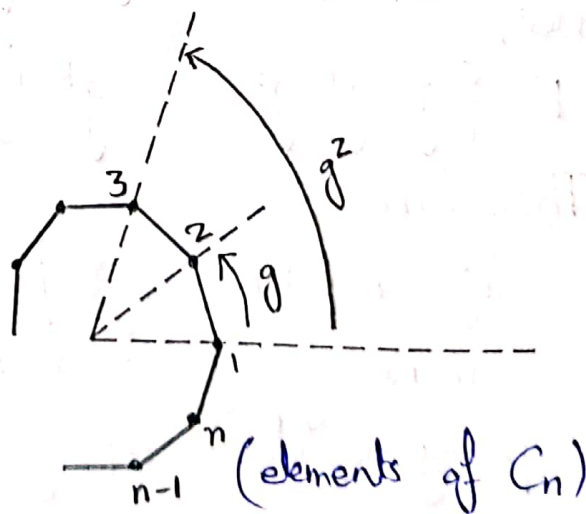 3
g²
2
g
1
n
n-1
(elements of Cn)